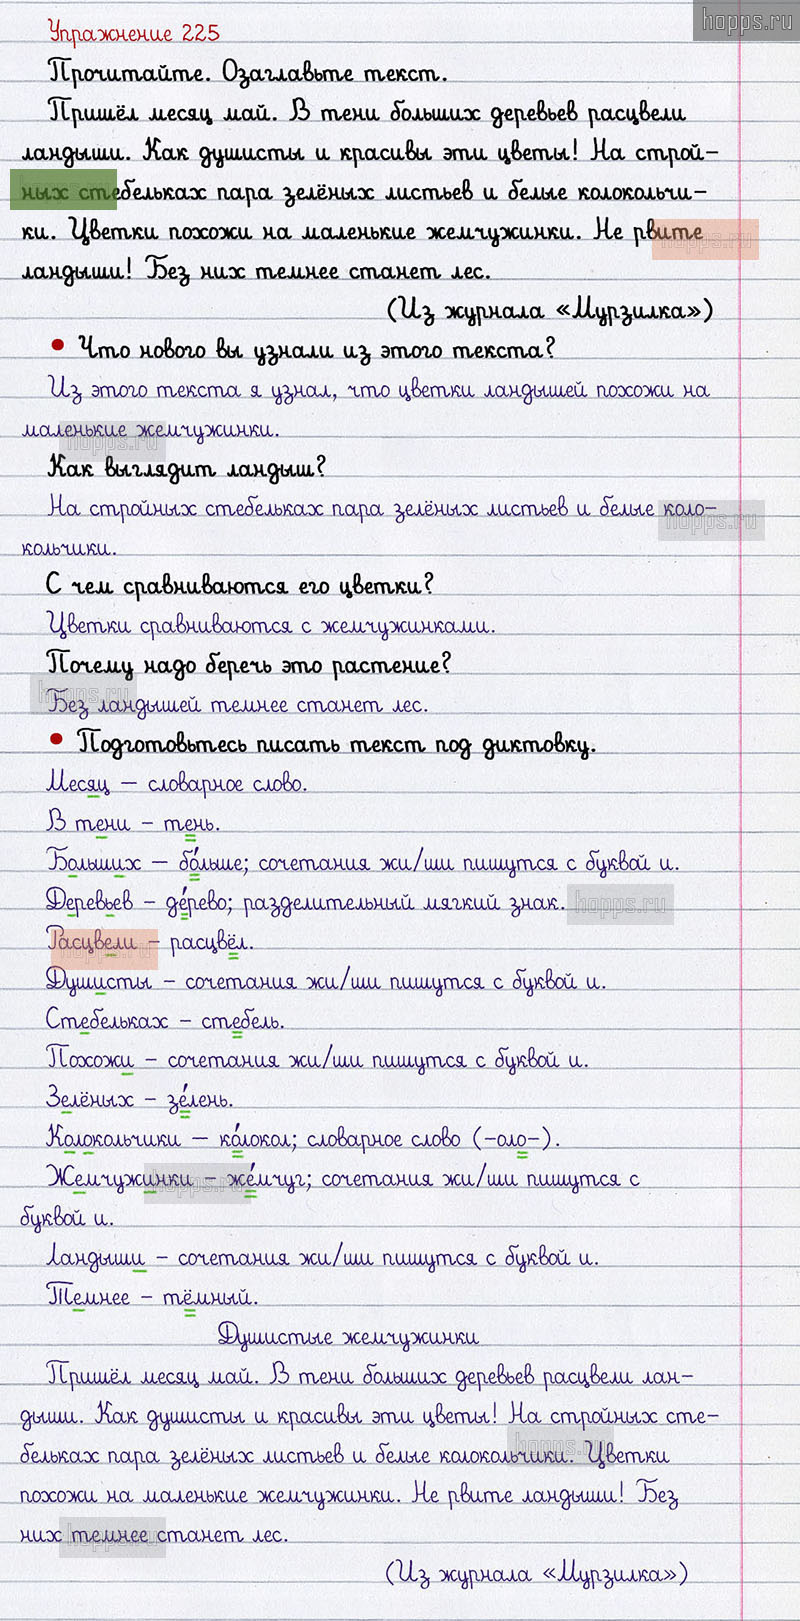 hopps.ru
Упражнение 225
Прочитайте. Озаглавьте текст.
Пришёл месяц май. В тени больших деревьев расцвели
ландыши. Как душисты и красивы эти цветы! На строй-
ных стебельках пара зелёных листьев и белые колокольчи-
ки. Цветки похожи на маленькие жемчужинки. Не рвите
hopps.ru
ландыши! Без них темнее станет лес.
(Из журнала «Мурзилка»)
• Что нового вы узнали из этого текста?
Из этого текста я узнал, что цветки ландышей похожи на
маленькие жемчужинки.
hopps.ru
Как выглядит ландыш?
На стройных стебельках пара зелёных листьев и белые коло-
hopps.ru
кольчики.
С чем сравниваются его цветки?
Цветки сравниваются с жемчужинками.
Почему надо беречь это растение?
hopps.ru
Без ландышей темнее станет лес.
• Подготовьтесь писать текст под диктовку.
Месяц — словарное слово.
В тени – тень.
Больших — бо́льше; сочетания жи/ши пишутся с буквой и.
Деревьев – де́рево; разделительный мягкий знак.
hopps.ru
Расцвели – расцвёл.
hopps.ru
Душисты – сочетания жи/ши пишутся с буквой и.
Стебельках – стебель.
Похожи – сочетания жи/ши пишутся с буквой и.
Зелёных – зе́лень.
Колокольчики — ко́локол; словарное слово (-оло-).
Жемчужинки – же́мчуг; сочетания жи/ши пишутся с
hopps.ru
буквой и.
Ландыши – сочетания жи/ши пишутся с буквой и.
Темнее – тёмный.
Душистые жемчужинки
Пришёл месяц май. В тени больших деревьев расцвели лан-
дыши. Как душисты и красивы эти цветы! На стройных сте-
бельках пара зелёных листьев и белые колокольчики. Цветки
hopps.ru
похожи на маленькие жемчужинки. Не рвите ландыши! Без
них темнее станет лес.
hopps.ru
(Из журнала «Мурзилка»)